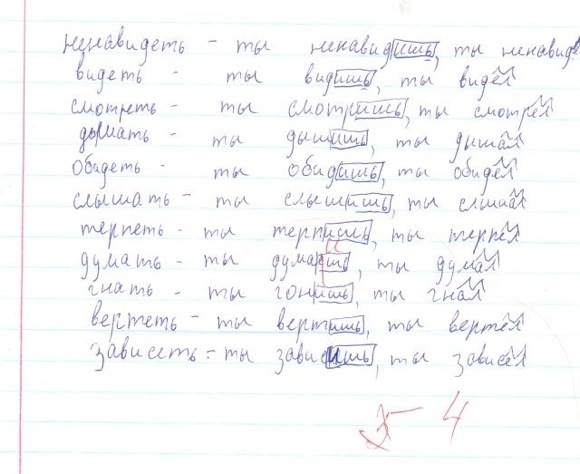 ненавидеть - ты ненавидишь, ты ненавиде
видеть - ты видишь, ты видел
смотреть - ты смотришь, ты смотрел
дымать - ты дышишь, ты дышал
обидеть - ты обидишь, ты обидел
слышать - ты слышишь, ты слышал
терпеть - ты терпишь, ты терпел
думать - ты думаешь, ты думал
гнать - ты гонишь, ты гнал
вертеть - ты вертишь, ты вертел
зависеть - ты зависишь, ты зависел
4